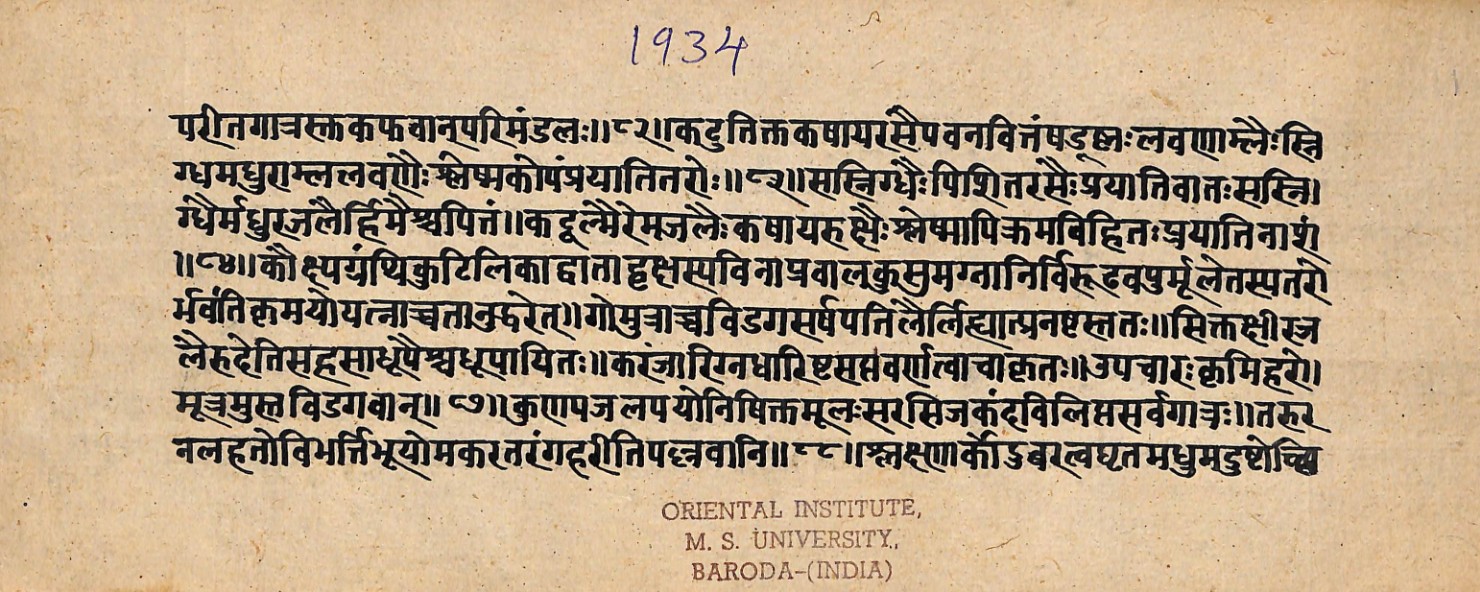 1934
परीतगात्रस्क्तकफवान्परिमंडलः॥८२॥कटुतिक्तकषायरसैपवनवित्तंषडूष्लःलवणाम्लैःस्नि
ग्धमधुराम्ललवणैःश्लेष्मकोपंप्रयातितरोः॥८३॥सस्निग्धैःपिशितरसैःप्रयातिवातःसस्नि।
ग्धैर्मधुरजलैर्हिमैश्चपित्तं॥कटूल्मैरेमजलैःकषायरुक्षैःश्लेष्मापिक्रमविहितःप्रयातिनाशं
॥८४॥कौक्ष्पयंथिकुटिलिकाद्वाताद्वृक्षस्पविनाप्रवालकुसुमग्नानिर्विरूढवपुर्मूलेतस्पतरो
र्भवंतिकृमयोयत्नाच्चतानुद्धरेत्॥गोमुत्राच्चविडगसर्षपतिलैर्लिह्यात्प्रनष्टस्ततः॥सिक्तक्षीरज
लैरुदेतिसहसाधूपैश्चधूपायितः॥करंजारिग्नधारिष्टसप्तवर्णत्वाचाकृतः॥उपचारःकृमिहरो।
मूत्रमुस्तविडगवान्॥८७॥कुणपजलपयोनिषिक्तमूलःसरसिजकंदविलिप्तसर्वगात्रः॥तरुर
नलहतोविभर्त्तिभूयोमकरतरंगहरीतिपल्लवानि॥८८॥श्लक्ष्णार्कोडुबरत्वघृतमधुमदुष्टो
ORIENTAL INSTITUTE,
M. S. UNIVERSITY,
BARODA-(INDIA)